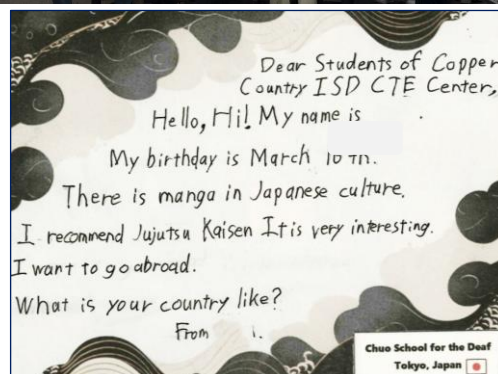 Dear Students of Copper
Country ISD CTE Center,
Hello, Hi! My name is .
My birthday is March 10 TH.
There is manga in Japanese culture.
I recommend Jujutsu Kaisen It is very interesting.
I want to go abroad.
What is your country like?
From .
Chuo School for the Deaf
Tokyo, Japan